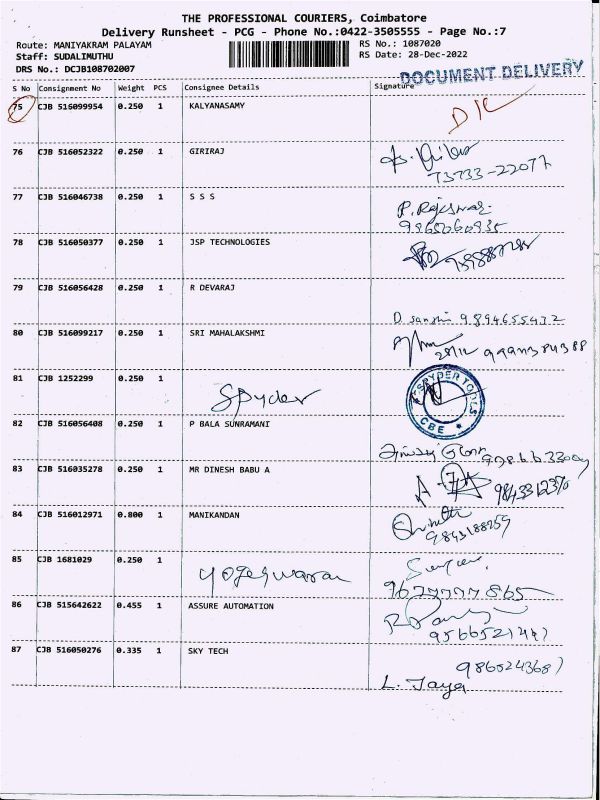 THE PROFESSIONAL COURIERS, Coimbatore
Delivery Runsheet - PCG - Phone No.:0422-3505555 - Page No.:7
Route: MANIYAKRAM PALAYAM RS No.: 1087020
Staff: SUDALIMUTHU RS Date: 28-Dec-2022
DRS No.: DCJB108702007
DOCUMENT DELIVERY
S No Consignment No Weight PCS Consignee Details Signature
75 CJB 516099954 0.250 1 KALYANASAMY
76 CJB 516052322 0.250 1 GIRIRAJ
73733-22077
77 CJB 516046738 0.250 1 S S S
P. Rajeswar.
9865060935
78 CJB 516050377 0.250 1 JSP TECHNOLOGIES
79 CJB 516056428 0.250 1 R DEVARAJ
D. 9894655432
80 CJB 516099217 0.250 1 SRI MAHALAKSHMI
28/12
81 CJB 1252299 0.250 1
Spyder
SPYDER TOOLS
CBE
82 CJB 516056408 0.250 1 P BALA SUNRAMANI
83 CJB 516035278 0.250 1 MR DINESH BABU A
84 CJB 516012971 0.800 1 MANIKANDAN
9843188959
85 CJB 1681029 0.250 1
Yogeswaran
9677777865
86 CJB 515642622 0.455 1 ASSURE AUTOMATION
87 CJB 516050276 0.335 1 SKY TECH
9865243687
L. Jaya